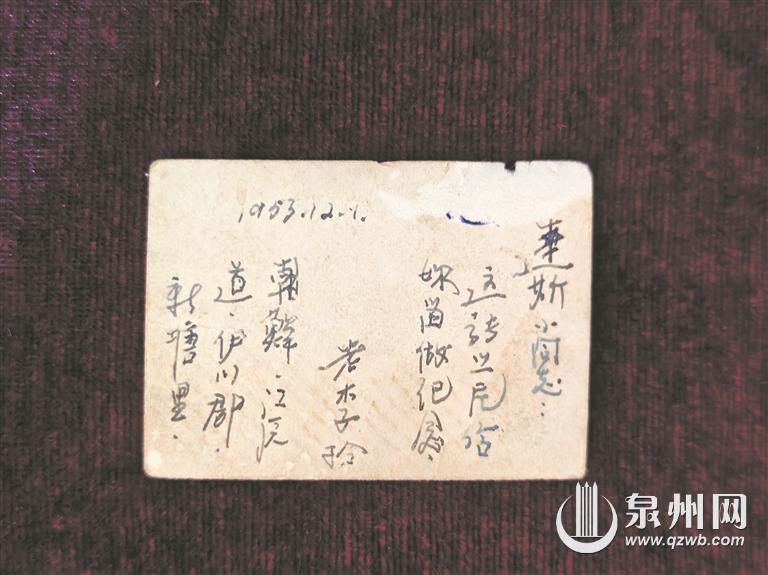 蓮斯小同志：
这张片给
妳留做纪念.
木子玲
朝鮮.江原
道.伊川郡.
新塘里.
1953.12.1.
泉州网
www.qzwb.com